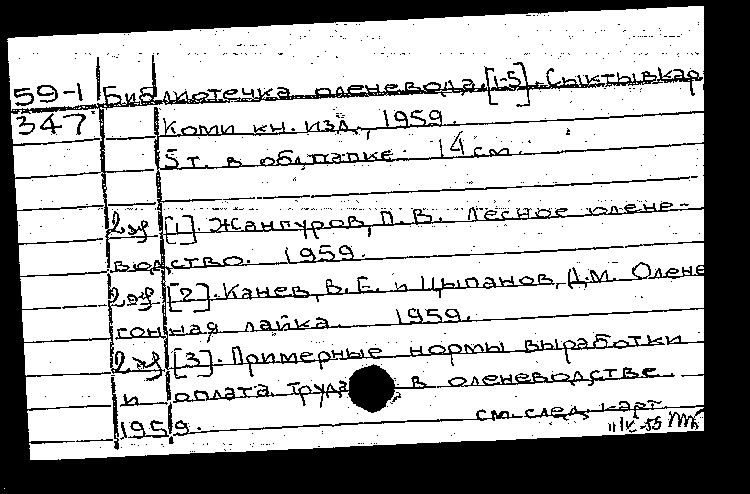 59-1 Библиотечка оленевода. [1-5]. Сыктывкар,
347 Коми кн. изд., 1959.
5 т. в общ. папке. 14 см.
2 эк [1]. Жангуров, П. В. Лесное олене-
водство. 1959.
2 эк [2]. Канев, В. Е. и Цыпанов, Д.М. Олене
гонная лайка. 1959.
2 эк [3]. Примерные нормы выработки
и оплата труда в оленеводстве.
1959.
см. след. карт.